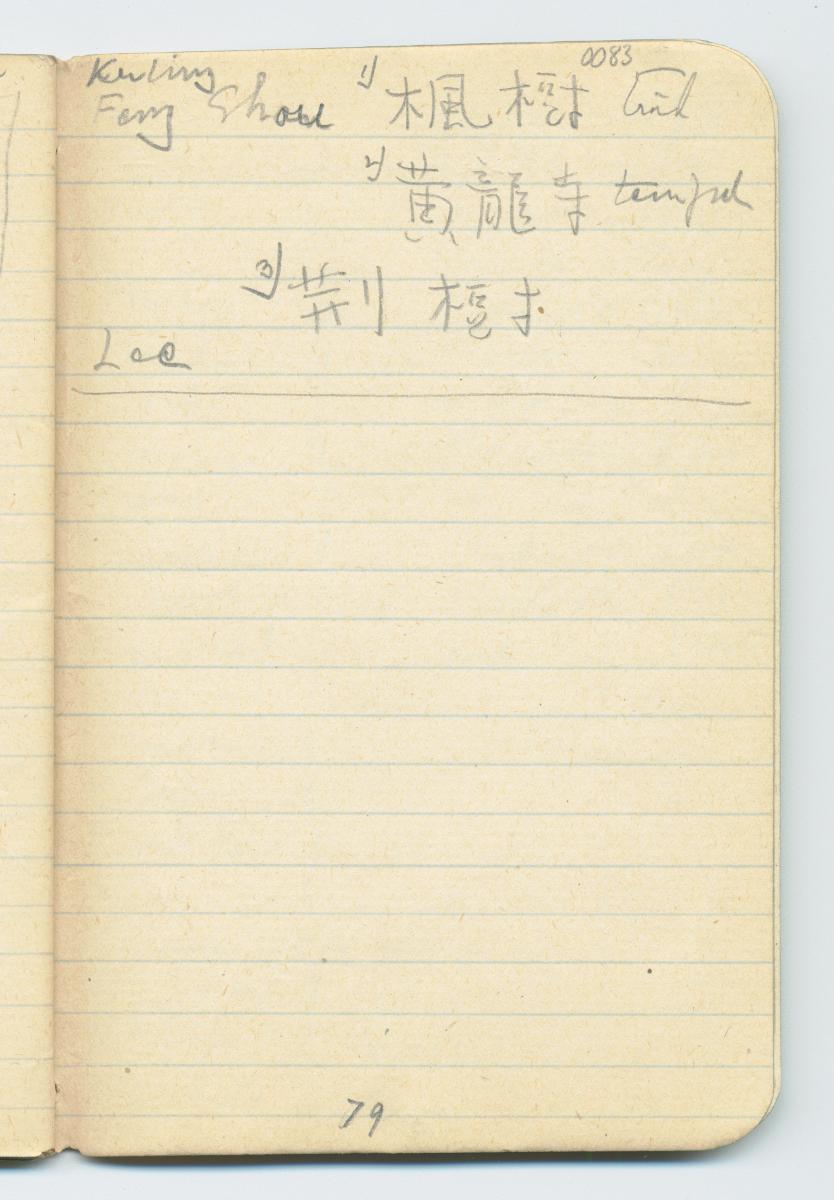 0083
Kuling
Feng Shou 1) 楓樹
2) 黄龍寺 tempel
3) 荆樹
Lee
79